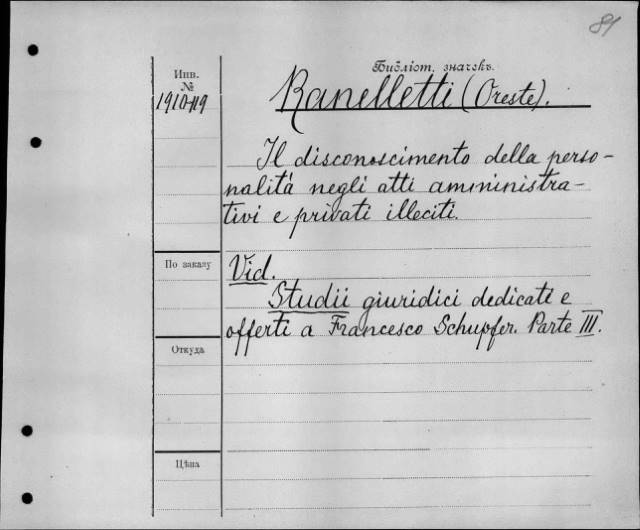 81
Библіот. значекъ.
Инв.
№
1910-119
Ranelletti (Oreste).
Il disconoscimento della perso-
nalità negli atti amministra-
tivi e privati illeciti.
По заказу
Vid.
Studii giuridici dedicati e
offerti a Francesco Schupfer. Parte III.
Откуда
Цѣна